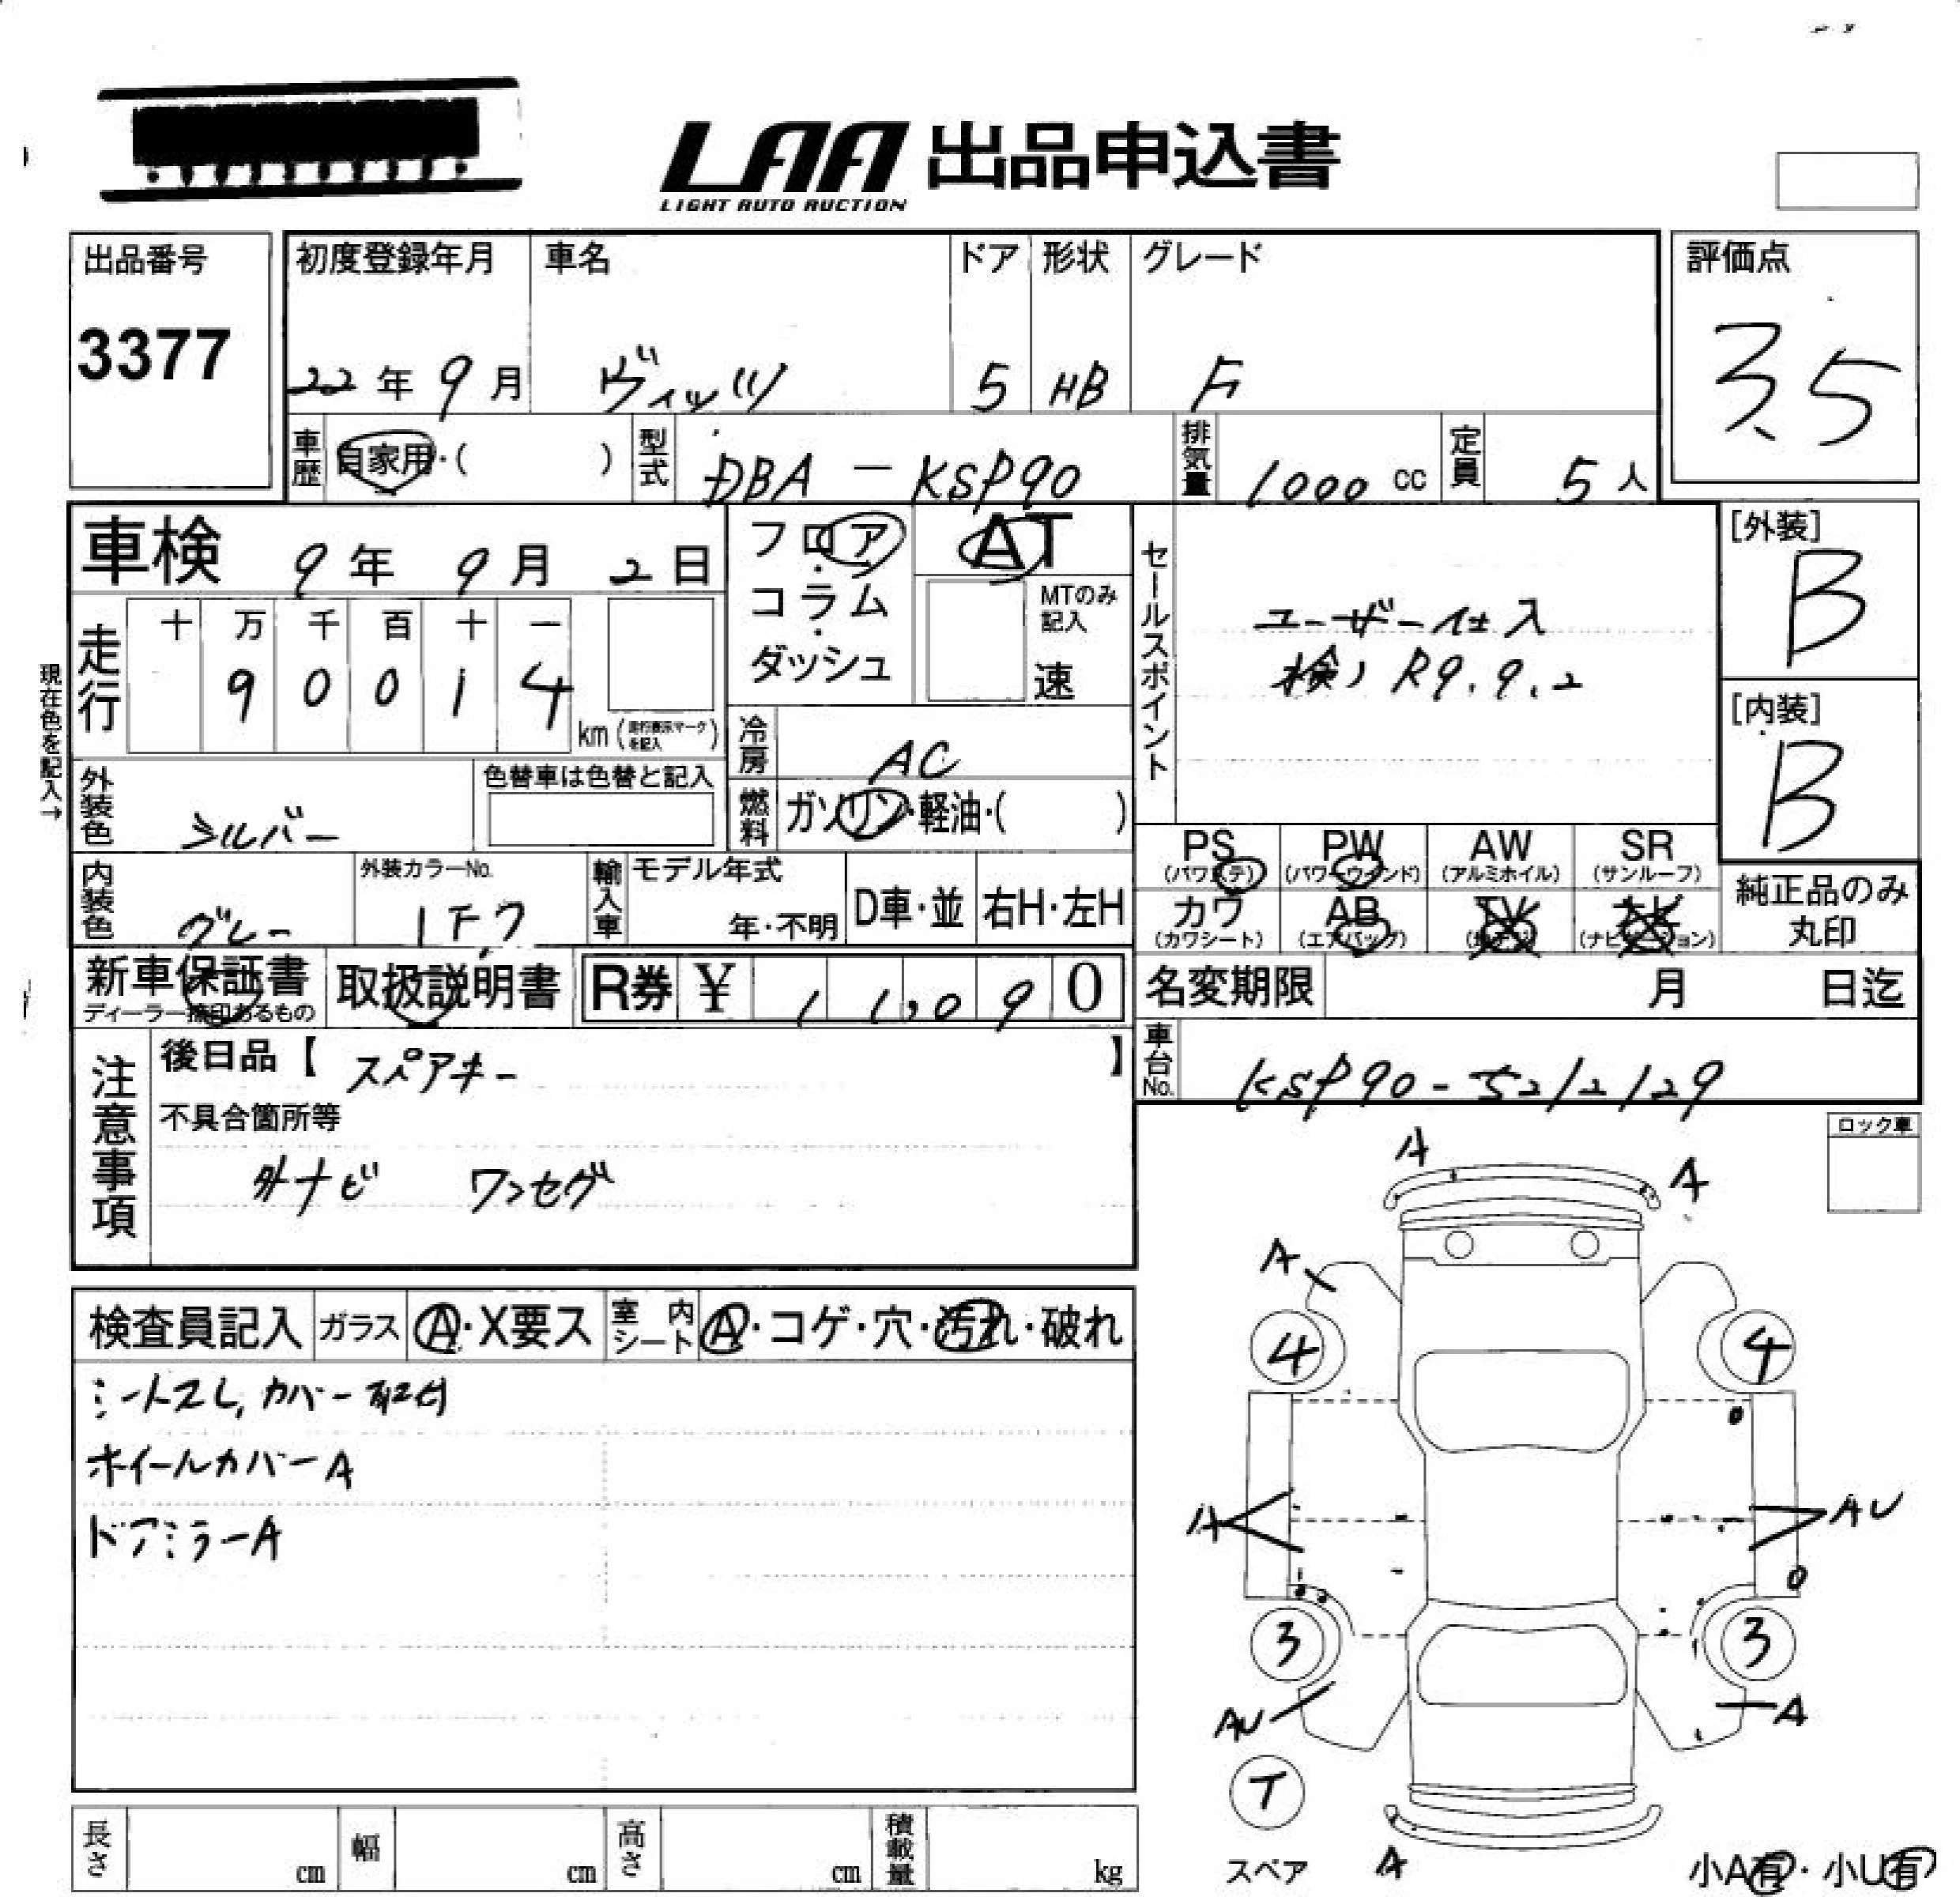 LAA 出品申込書
LIGHT AUTO AUCTION
出品番号
3377
初度登録年月
22年9月
車名
ヴィッツ
ドア
5
形状
HB
グレード
F
評価点
3.5
車歴
自家用・( )
型式
DBA-KSP90
排気量
1000 cc
定員
5人
車検 9年9月2日
フロア・コラム・ダッシュ
AT
MTのみ記入
速
走行
十 万 千 百 十 一
9 0 0 1 4
km (走行表示マークを記入)
現在色を記入→
外装色
シルバー
色替車は色替と記入
冷房
AC
燃料
ガソリン・軽油・( )
内装色
グレー
外装カラーNo.
1F7
輸入車
モデル年式
年・不明
D車・並
右H・左H
セールスポイント
ユーザー仕入
検) R9.9.2
[外装]
B
[内装]
B
PS
(パワステ)
PW
(パワーウインド)
AW
(アルミホイル)
SR
(サンルーフ)
カワ
(カワシート)
AB
(エアバッグ)
TV
ナビ
純正品のみ
丸印
新車保証書
ディーラー捺印あるもの
取扱説明書
R券 ¥ 11,090
名変期限
月 日迄
車台No.
KSP90-5212129
注意事項
後日品【 スペアキー 】
不具合箇所等
外ナビ ワンセグ
ロック車
検査員記入
ガラス
A・X要ス
室内シート
A・コゲ・穴・汚れ・破れ
シートスレ, カバー取付
ホイールカバーA
ドアミラーA
A
A
A
4
4
A
AU
3
3
AU
A
T
スペア
A
小A有・小U有
長さ
cm
幅
cm
高さ
cm
積載量
kg